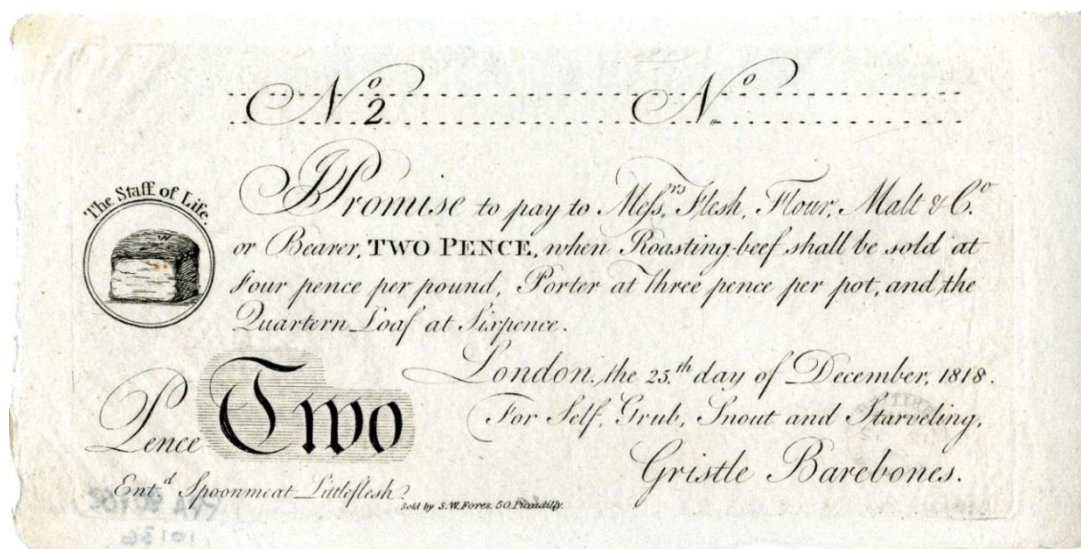 No 2 No
The Staff of Life.
I Promise to pay to Mess.rs Flesh, Flour, Malt & Co.
or Bearer, TWO PENCE, when Roasting beef shall be sold at
Four pence per pound, Porter at Three pence per pot, and the
Quartern Loaf at Sixpence.
London, the 25.th day of December, 1818.
Pence Two
For Self, Grub, Snout and Starveling,
Gristle Barebones.
Ent.d Spoonmeat Littleflesh
Sold by S.W. Fores, 50, Piccadilly.